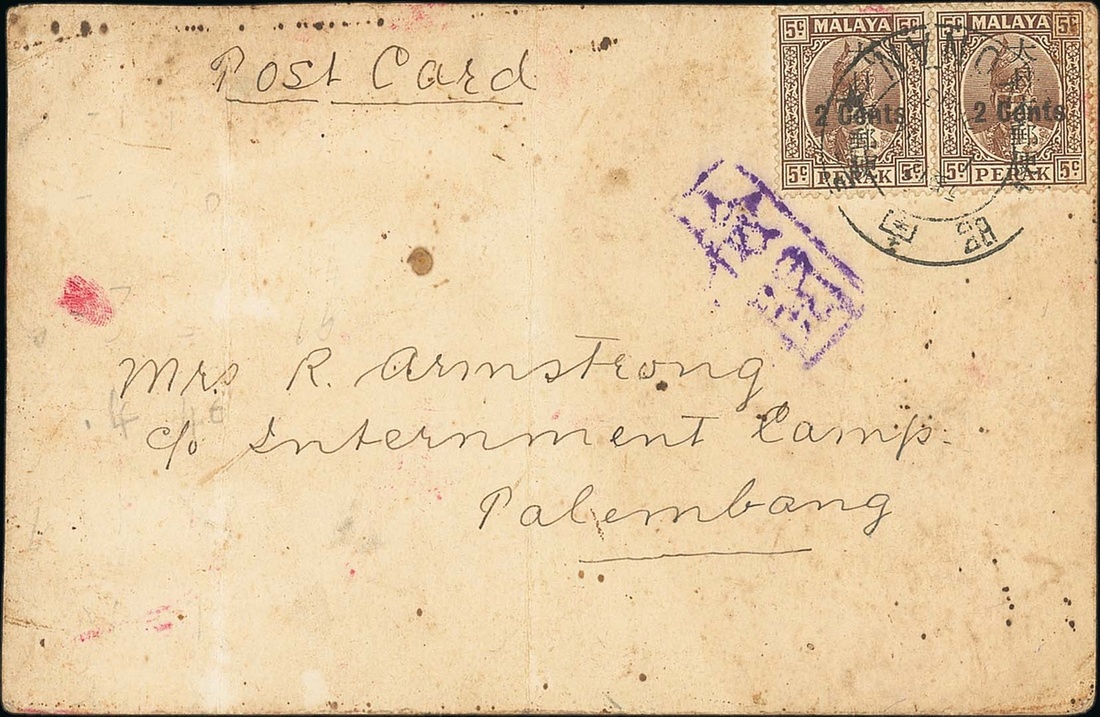 Post Card
5c MALAYA 5c
2 Cents
大日本郵便
5c PERAK 5c
5c MALAYA 5c
2 Cents
大日本郵便
5c PERAK
昭南
Mrs R. Armstrong
c/o Internment Camp.
Palembang